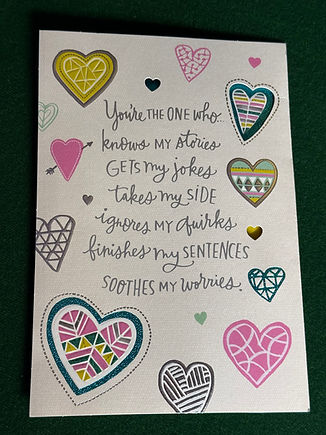 You're THE ONE who
knows MY stories
GETS my jokes
takes my SIDE
ignores MY quirks
finishes my SENTENCES
SOOTHES MY worries.